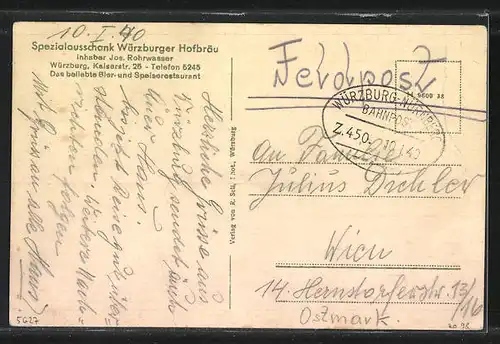 10. I. 40
Spezialausschank Würzburger Hofbräu
Inhaber Jos. Rohrwasser
Würzburg, Kaiserstr. 25 - Telefon 5245
Das beliebte Bier- und Speiserestaurant
Herzliche Grüsse aus
Würzburg sendet Euch
Euer Hans.
Reise gut über-
standen. Weitere Nach-
richten folgen
Gruss an alle Hans
Verlag von R. Würzburg
Feldpost
WÜRZBURG-NÜRNBERG
BAHNPOST
Z. 450 10.1.40
An Familie
Julius Dichler
Wien
14. Herndorferstr. 13/16
Ostmark.
5627